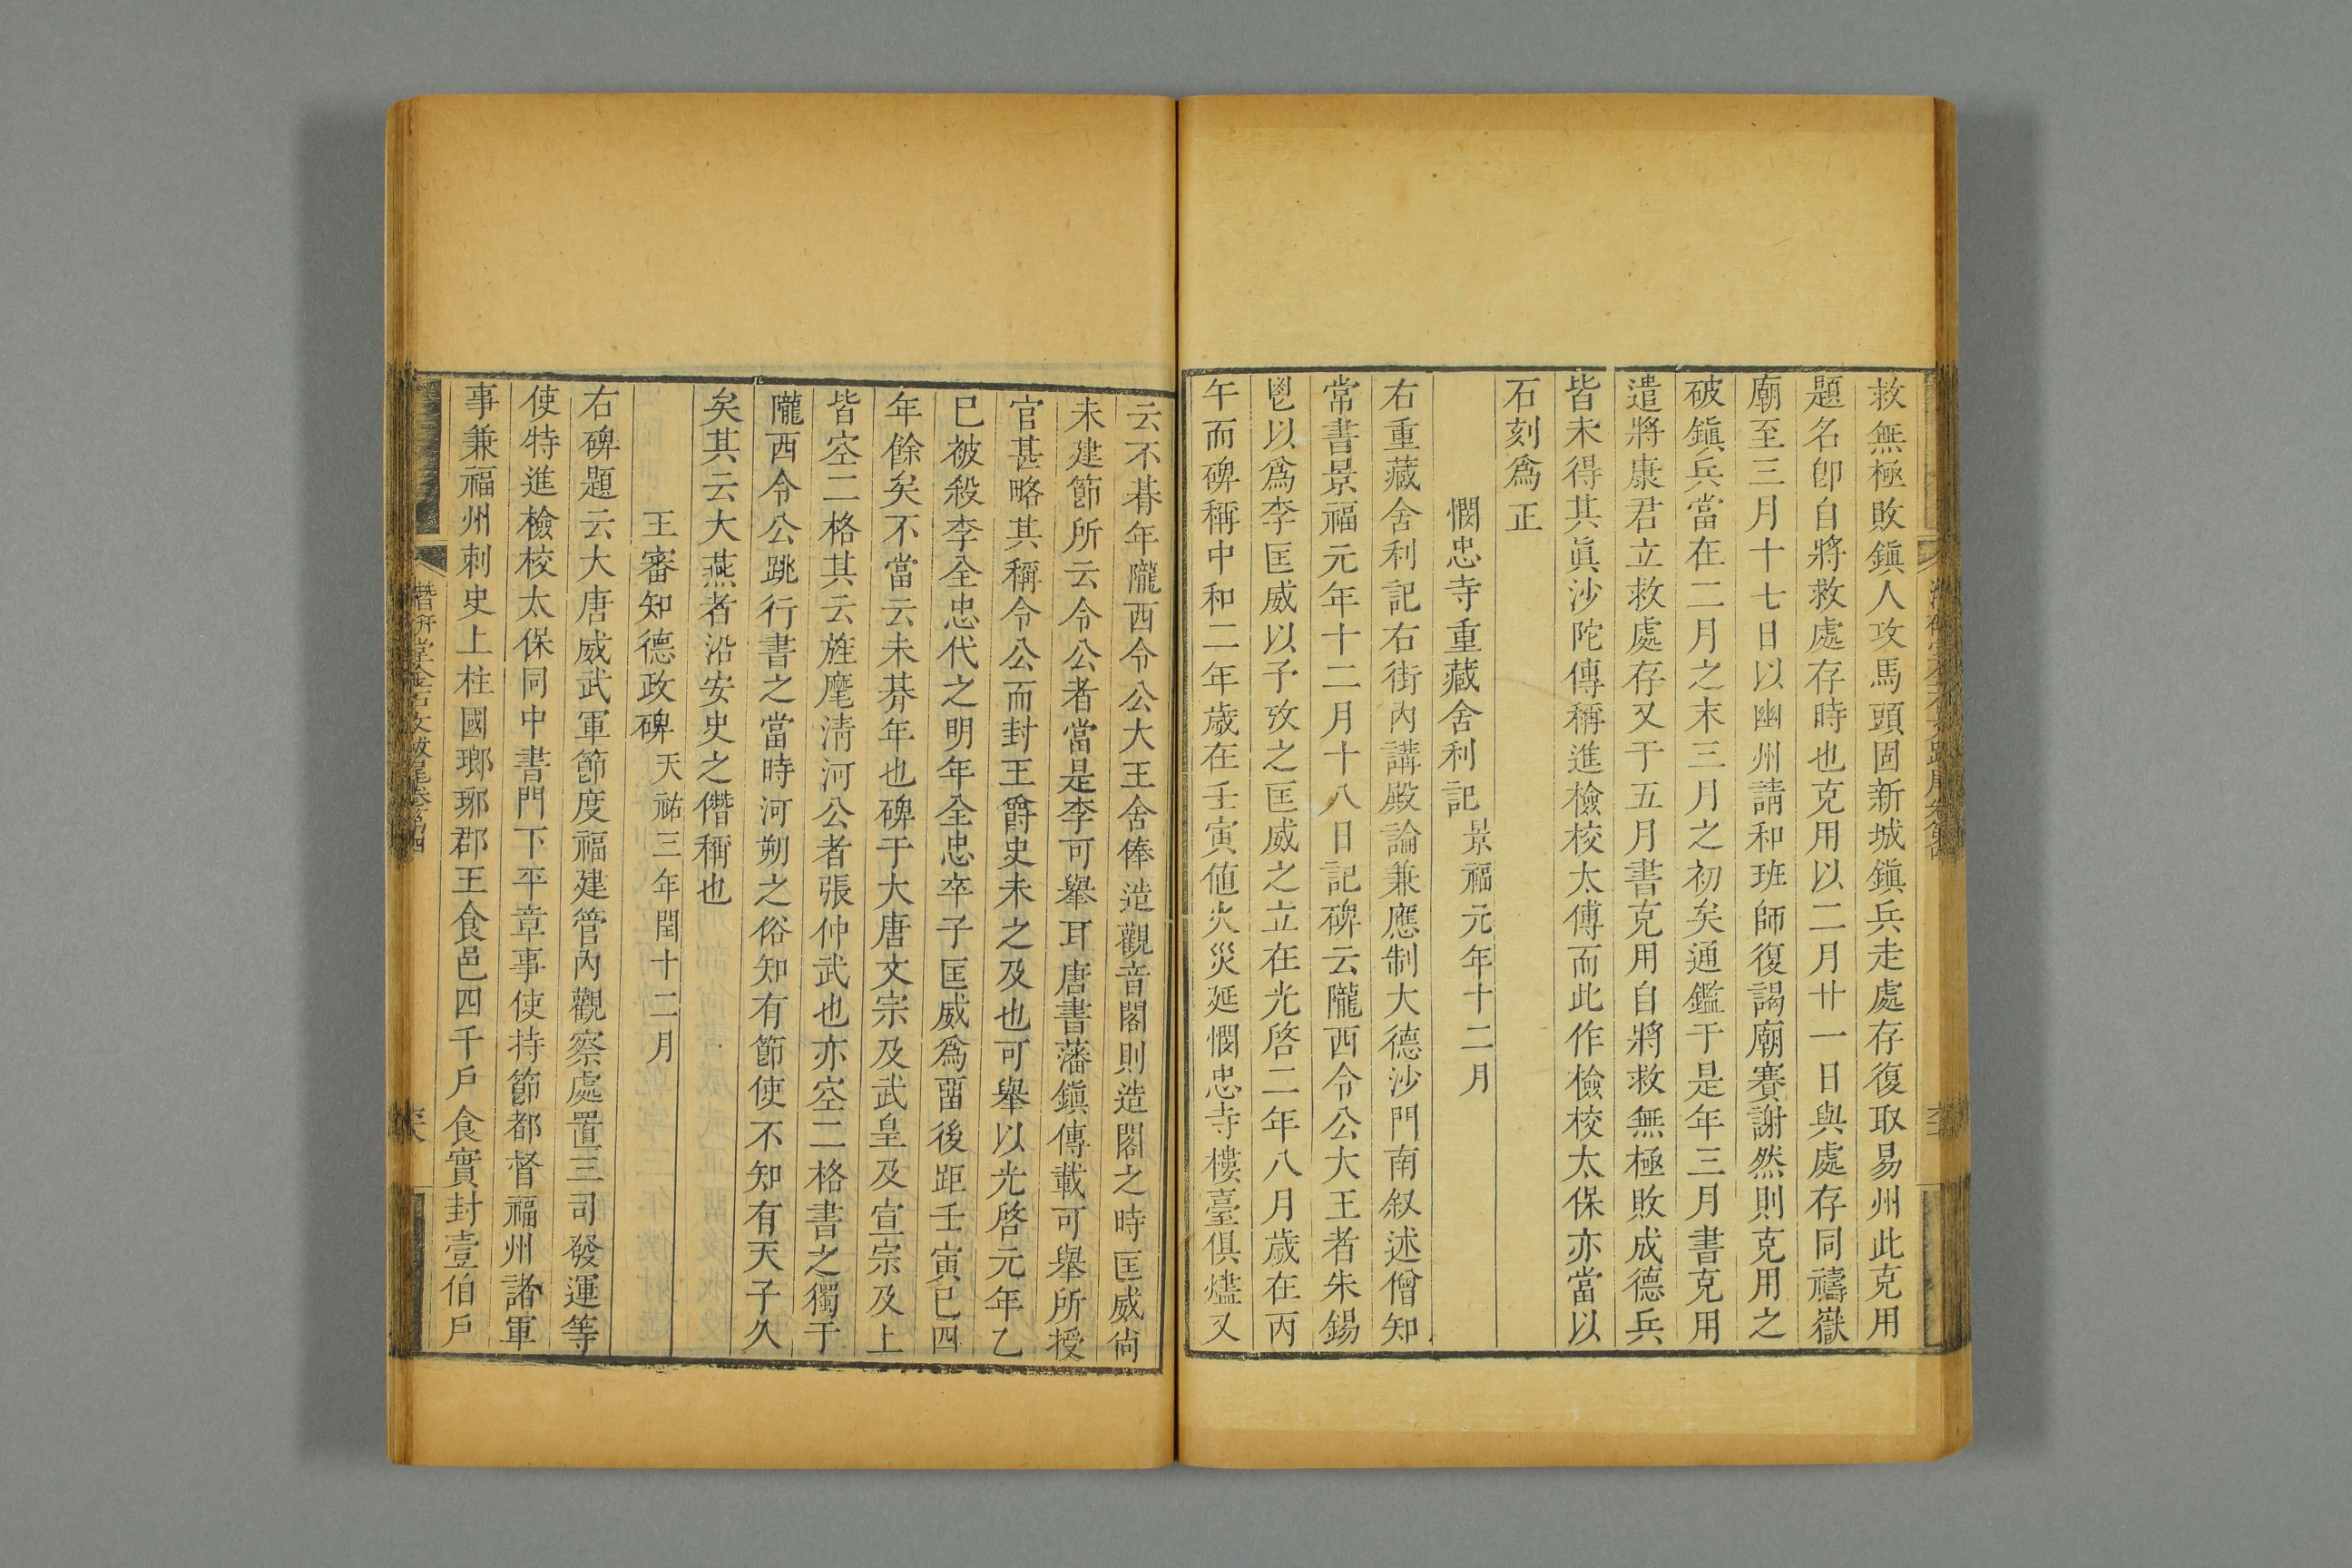 救無極敗鎭人攻馬頭固新城鎭兵走處存復取易州此克用
題名卽自將救處存時也克用以二月廿一日與處存同禱嶽
廟至三月十七日以幽州請和班師復謁廟賽謝然則克用之
破鎭兵當在二月之末三月之初矣通鑑于是年三月書克用
遣將康君立救處存又于五月書克用自將救無極敗成德兵
皆未得其眞沙陀傳稱進檢校太傅而此作檢校太保亦當以
石刻爲正
憫忠寺重藏舍利記景福元年十二月
右重藏舍利記右街內講殿論兼應制大德沙門南叙述僧知
常書景福元年十二月十八日記碑云隴西令公大王者朱錫
鬯以爲李匡威以予攷之匡威之立在光啓二年八月歲在丙
午而碑稱中和二年歲在壬寅值火災延憫忠寺樓臺俱燼又
云不朞年隴西令公大王舍俸造觀音閣則造閣之時匡威尙
未建節所云令公者當是李可舉耳唐書藩鎭傳載可舉所授
官甚略其稱令公而封王爵史未之及也可舉以光啓元年乙
巳被殺李全忠代之明年全忠卒子匡威爲畱後距壬寅已四
年餘矣不當云未朞年也碑于大唐文宗及武皇及宣宗及上
皆空二格其云旌麾清河公者張仲武也亦空二格書之獨于
隴西令公跳行書之當時河朔之俗知有節使不知有天子久
矣其云大燕者沿安史之僭稱也
王審知德政碑天祐三年閏十二月
右碑題云大唐威武軍節度福建管內觀察處置三司發運等
使特進檢校太保同中書門下平章事使持節都督福州諸軍
事兼福州刺史上柱國瑯琊郡王食邑四千戶食實封壹伯戶
潛研堂金石文跋尾卷第四